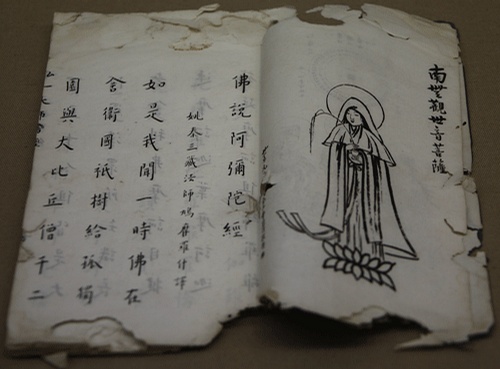 南無觀世音菩薩
佛說阿彌陀經
姚秦三藏法師鳩摩羅什譯
如是我聞一時佛在
舍衛國祇樹給孤獨
園與大比丘僧千二